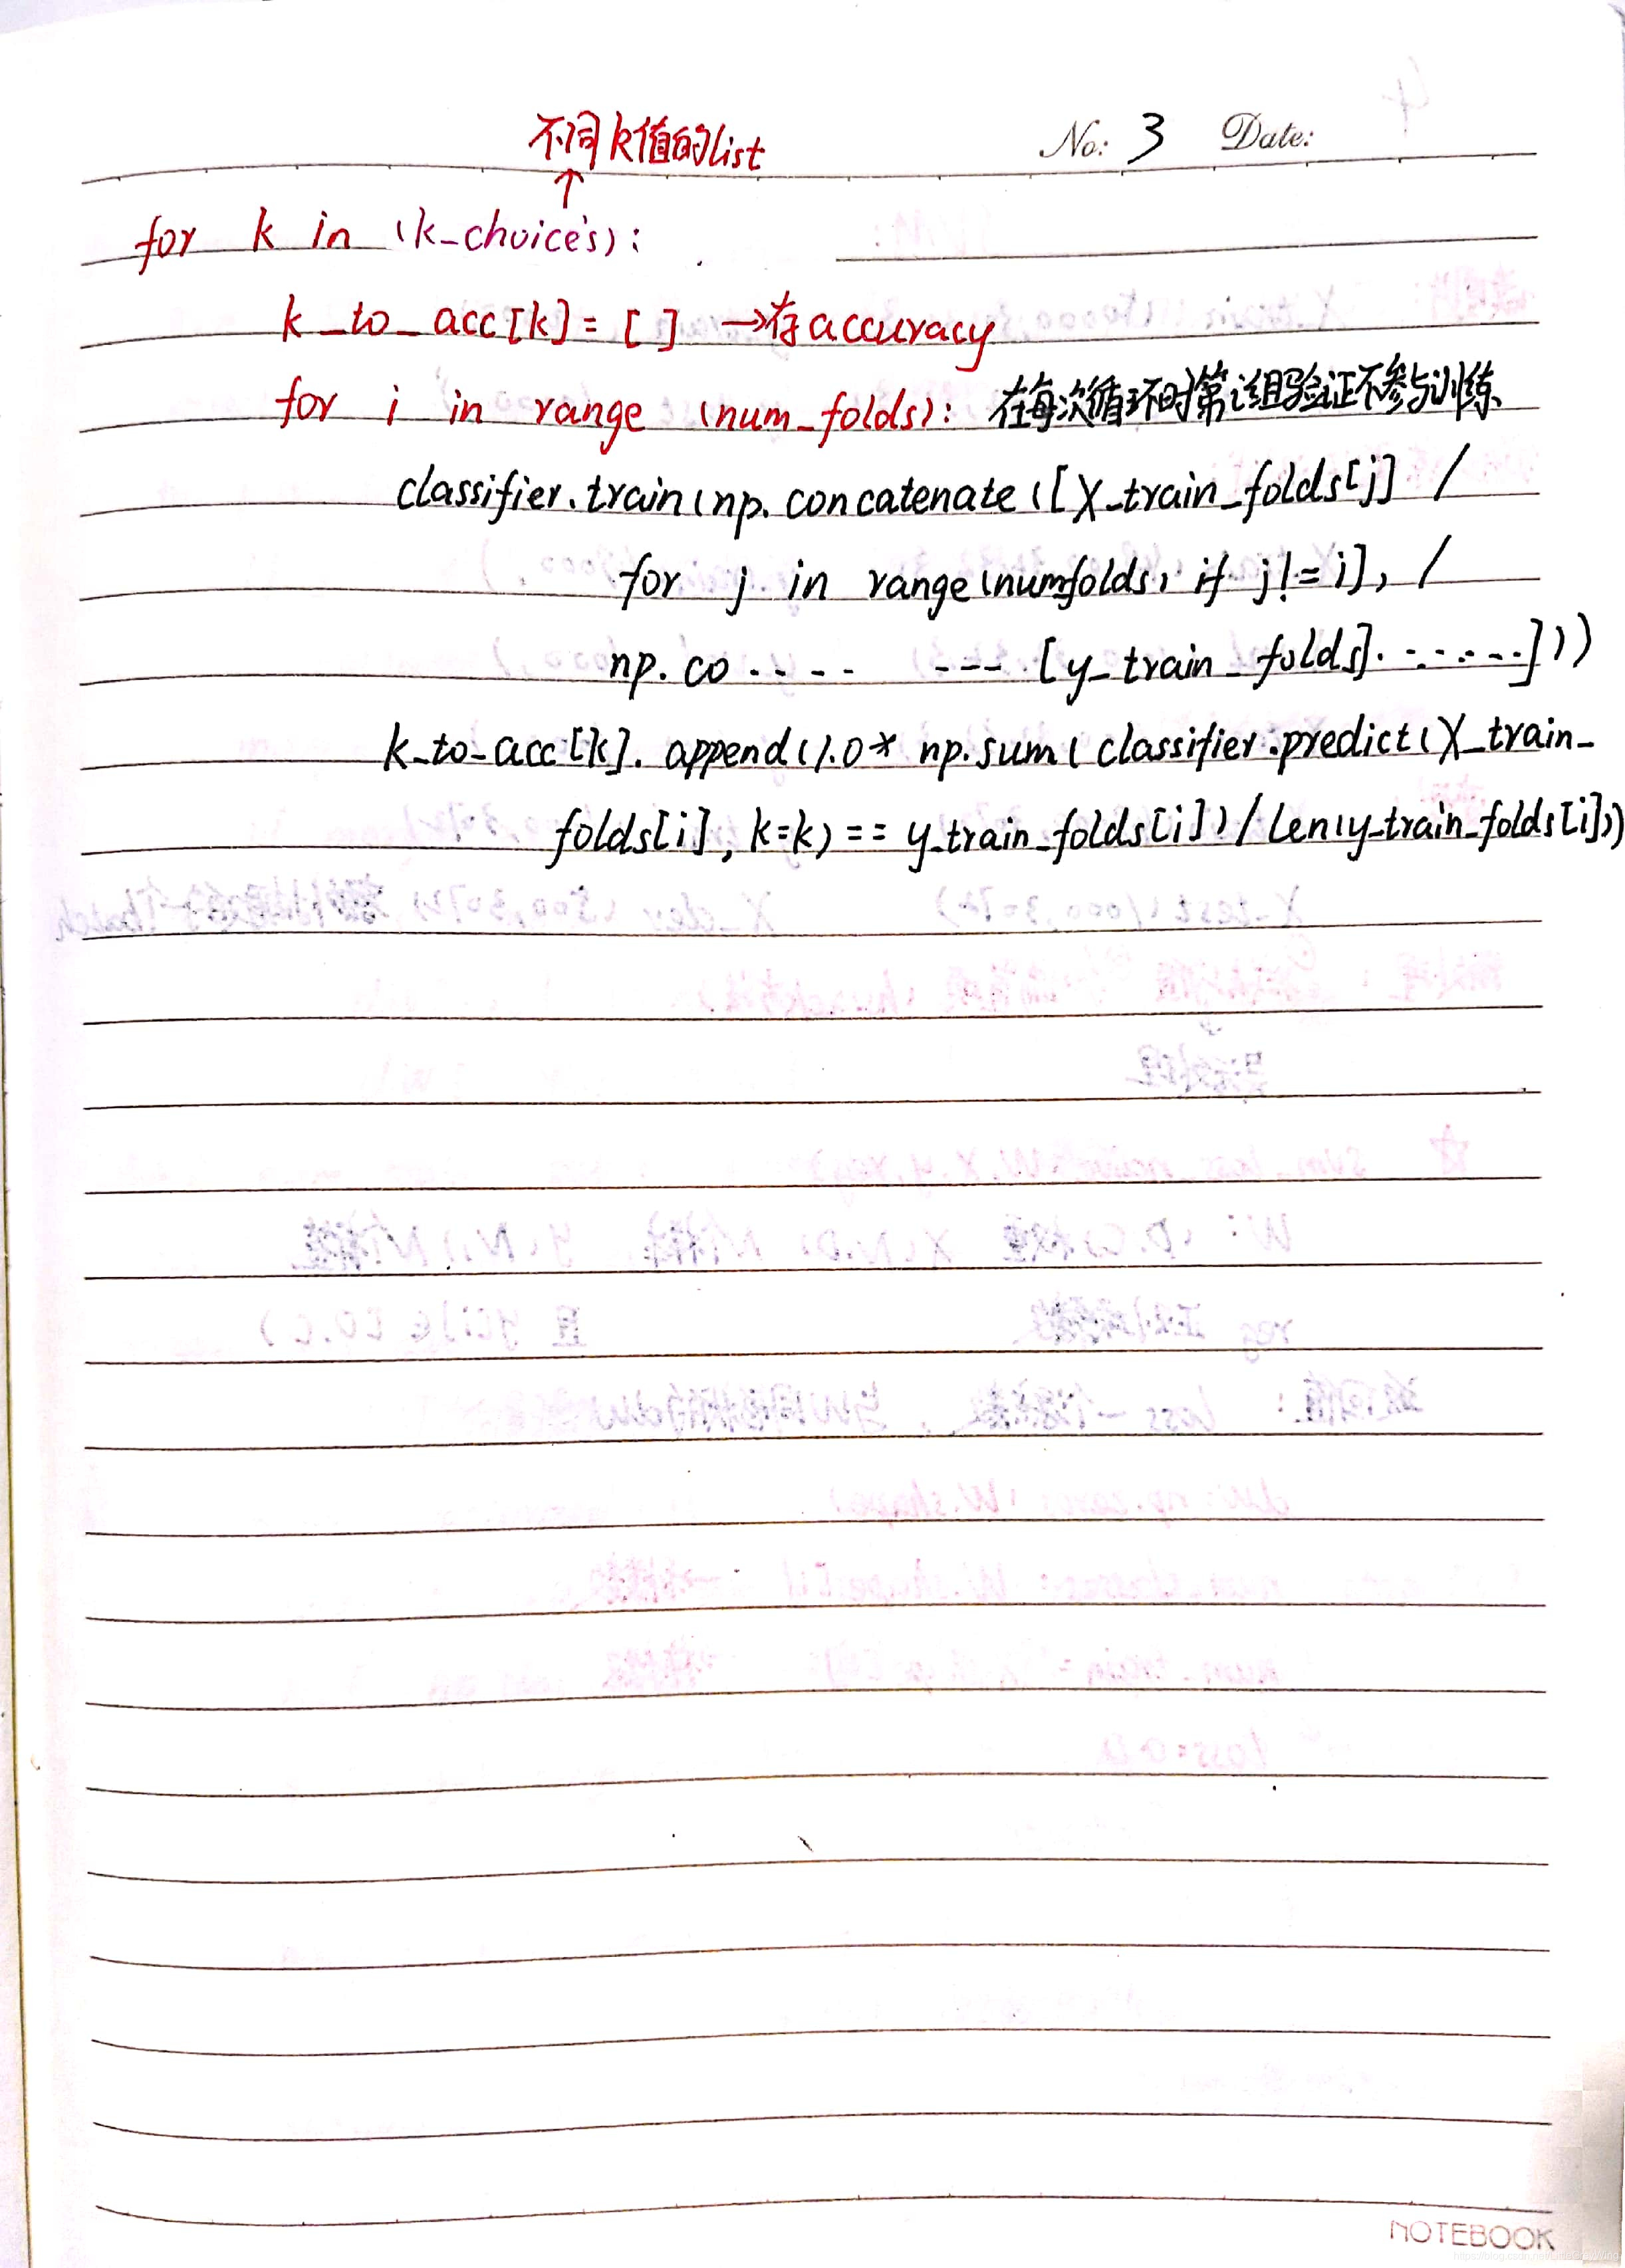 不同k值的list No: 3 Date:
↑
for k in (k_choices):
k_to_acc[k] = [ ] →存accuracy
for i in range (num_folds): 在每次循环时第i组验证不参与训练
classifier.train(np.concatenate([X_train_folds[j] /
for j in range(numfolds) if j!=i], /
np.co.... --- [y_train_folds].......]))
k_to_acc[k].append(1.0* np.sum(classifier.predict(X_train_
folds[i], k=k) == y_train_folds[i])/len(y_train_folds[i]))
NOTEBOOK